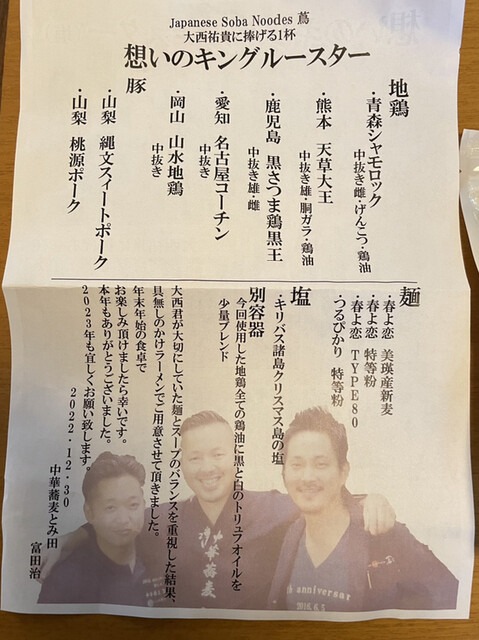 Japanese Soba Noodes 蔦
大西祐貴に捧げる1杯
想いのキングルースター
地鶏
・青森シャモロック
中抜き雌・げんこつ・鶏油
・熊本 天草大王
中抜き雄・胴ガラ・鶏油
・鹿児島 黒さつま鶏黒王
中抜き雄・雌
・愛知 名古屋コーチン
中抜き
・岡山 山水地鶏
中抜き
豚
・山梨 縄文スィートポーク
・山梨 桃源ポーク
麺
・春よ恋 美瑛産新麦
・春よ恋 特等粉
・春よ恋 TYPE80
・うるぴかり 特等粉
塩
・キリバス諸島クリスマス島の塩
別容器
今回使用した地鶏全ての鶏油に黒と白のトリュフオイルを
少量ブレンド
大西君が大切にしていた麺とスープのバランスを重視した結果、
具無しのかけラーメンでご用意させて頂きました。
年末年始の食卓で
お楽しみ頂けましたら幸いです。
本年もありがとうございました。
2023年も宜しくお願い致します。
2022・12・30
中華蕎麦とみ田
富田治
中華蕎麦
anniversar
2016.6.5